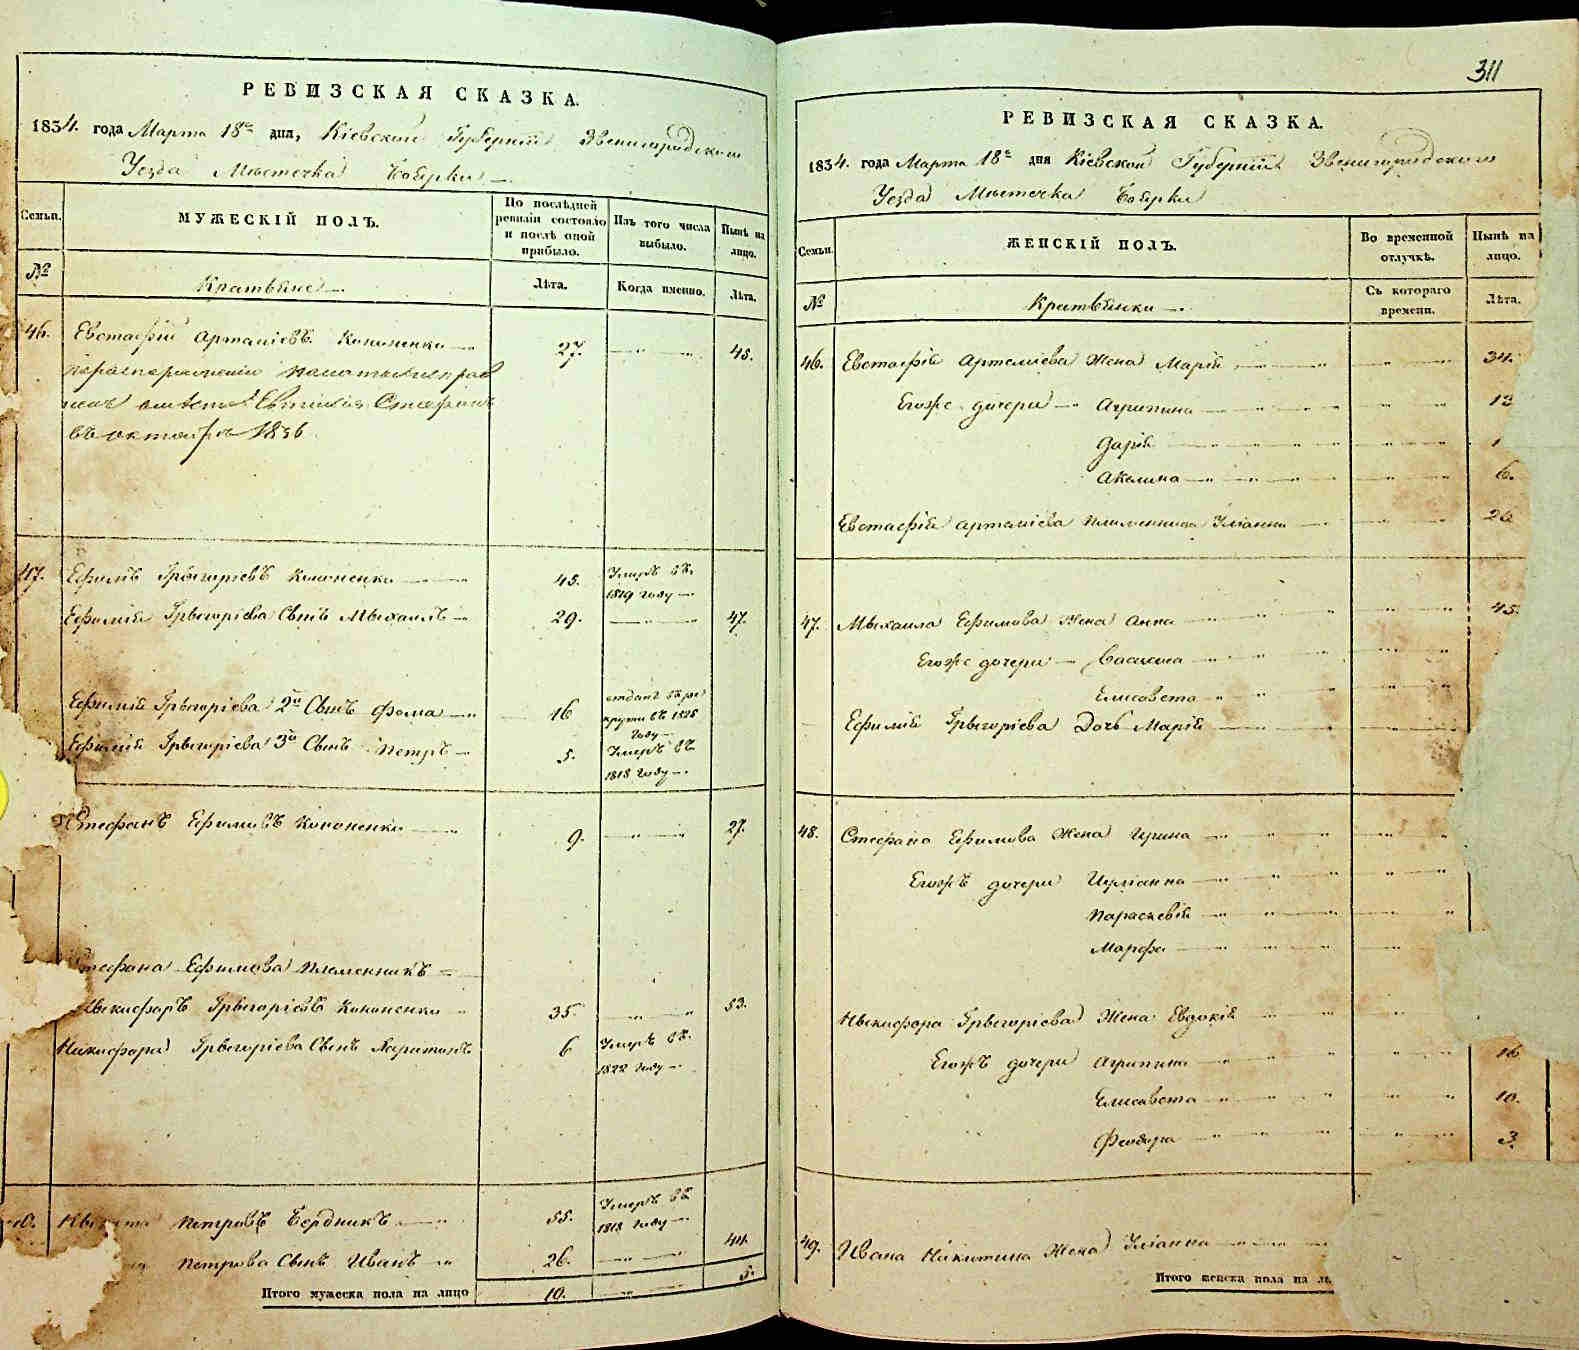 РЕВИЗСКАЯ СКАЗКА.
1834. года Марта 18го дня, Кіевской Губерніи Звенигородскаго
Уезда Мѣстечка Боберки
Семьи.
МУЖЕСКІЙ ПОЛЪ.
По послѣдней ревизіи состояло и послѣ оной прибыло.
Изъ того числа выбыло.
Нынѣ на лицо.
№
Лѣта.
Когда именно.
Лѣта.
46. Евстафій Артеміевъ Кононенко 27. 45.
въ октябрѣ 1836
47. Ефимъ Грыгоріевъ Кононенко 45. Умеръ въ 1819 году
Ефимія Грыгоріева Сынъ Мыхаилъ 29. 47.
Ефимія Грыгоріева 2й Сынъ Фома 16 отданъ въ рекруты въ 1828 году
Ефимія Грыгоріева 3й Сынъ Петръ 5. Умеръ въ 1818 году
Стефанъ Ефимовъ Кононенко 9. 27.
Стефана Ефимова Племенникъ
Ныкифоръ Грыгоріевъ Кононенко 35. 53.
Никифора Грыгоріева Сынъ Харитонъ 6 Умеръ въ 1822 году
Петровъ Бердникъ 55. Умеръ въ 1818 году
Петрова Сынъ Иванъ 26. 44.
Итого мужеска пола на лицо 10. 5.
311
РЕВИЗСКАЯ СКАЗКА.
1834. года Марта 18го дня Кіевской Губерніи Звенигородскаго
Уезда Мѣстечка Боберки
Семьи.
ЖЕНСКІЙ ПОЛЪ.
Во временной отлучкѣ.
Нынѣ на лицо.
№
Съ котораго времени.
Лѣта.
46. Евстафія Артеміева Жена Марія 34.
Егожъ дочери Агрипина 12
Дарія
Акелина 6.
Евстафія Артеміева племенница Уліанна 26
47. Мыхаила Ефимова Жена Анна 45.
Егожъ дочери Васылиса
Елисавета
Ефимія Грыгоріева Дочь Марія
48. Стефана Ефимова Жена Ирина
Егожъ дочери Иуліанна
Параскевія
Марфа
Ныкифора Грыгоріева Жена Евдокія
Егожъ дочери Агрипина 16
Елисавета 10.
Феодора 3.
49. Ивана Никитина Жена Уліанна
Итого женска пола на ли